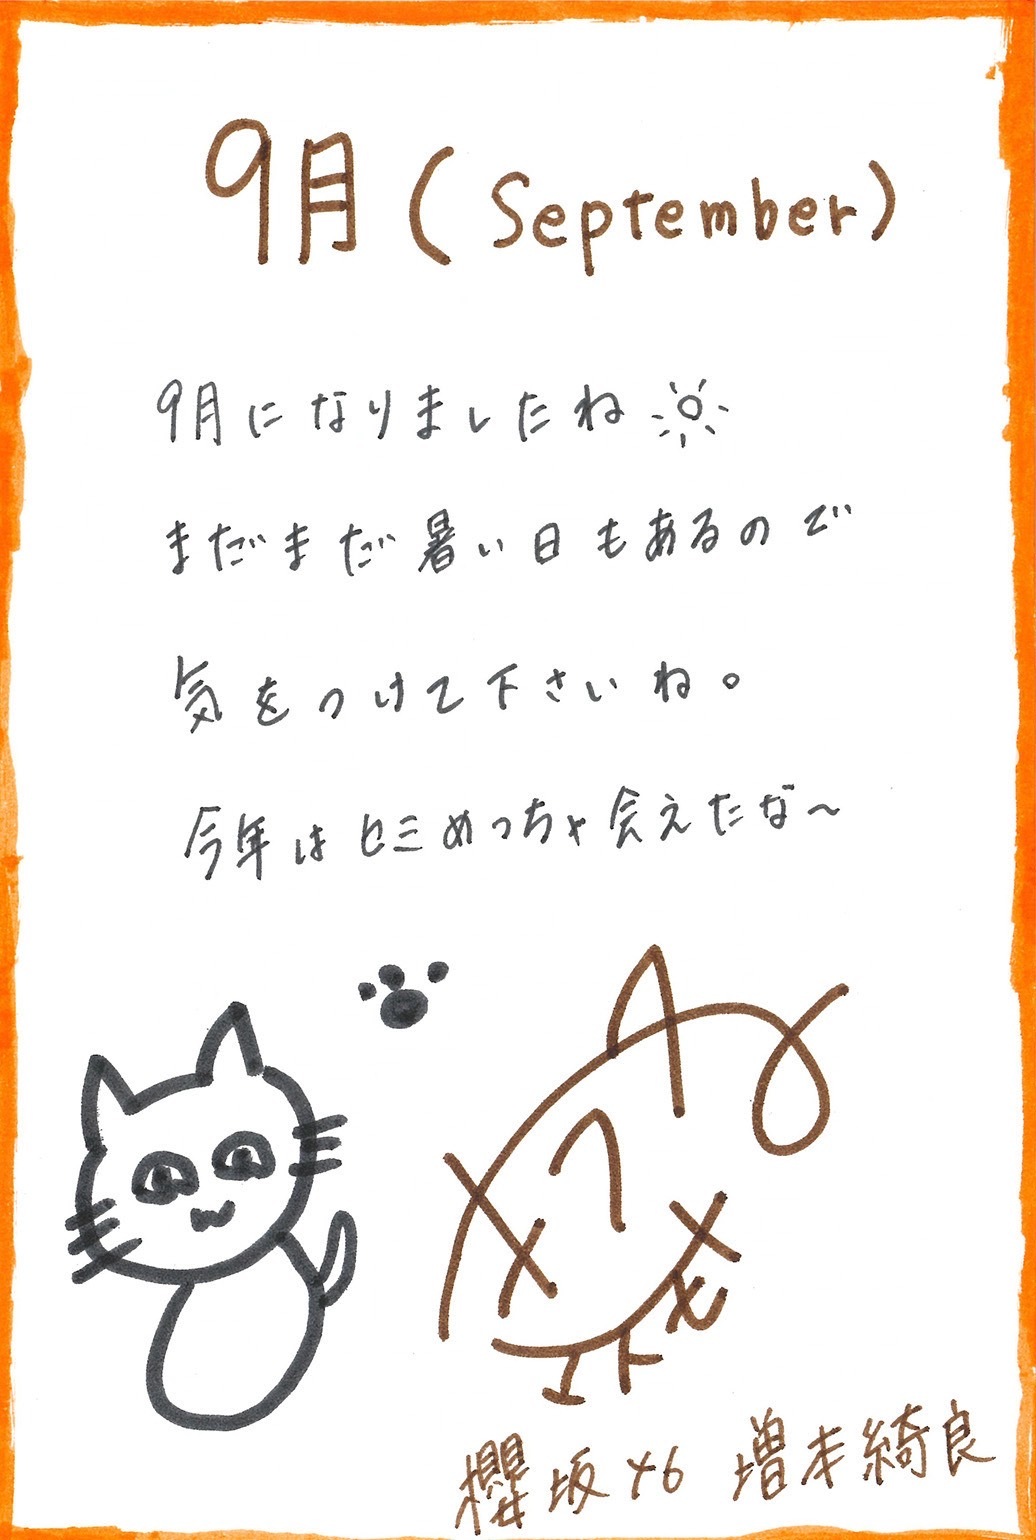 9月(September)
9月になりましたね
まだまだ暑い日もあるので
気をつけて下さいね。
今年はセミめっちゃ会えたな～
櫻坂46 増本綺良